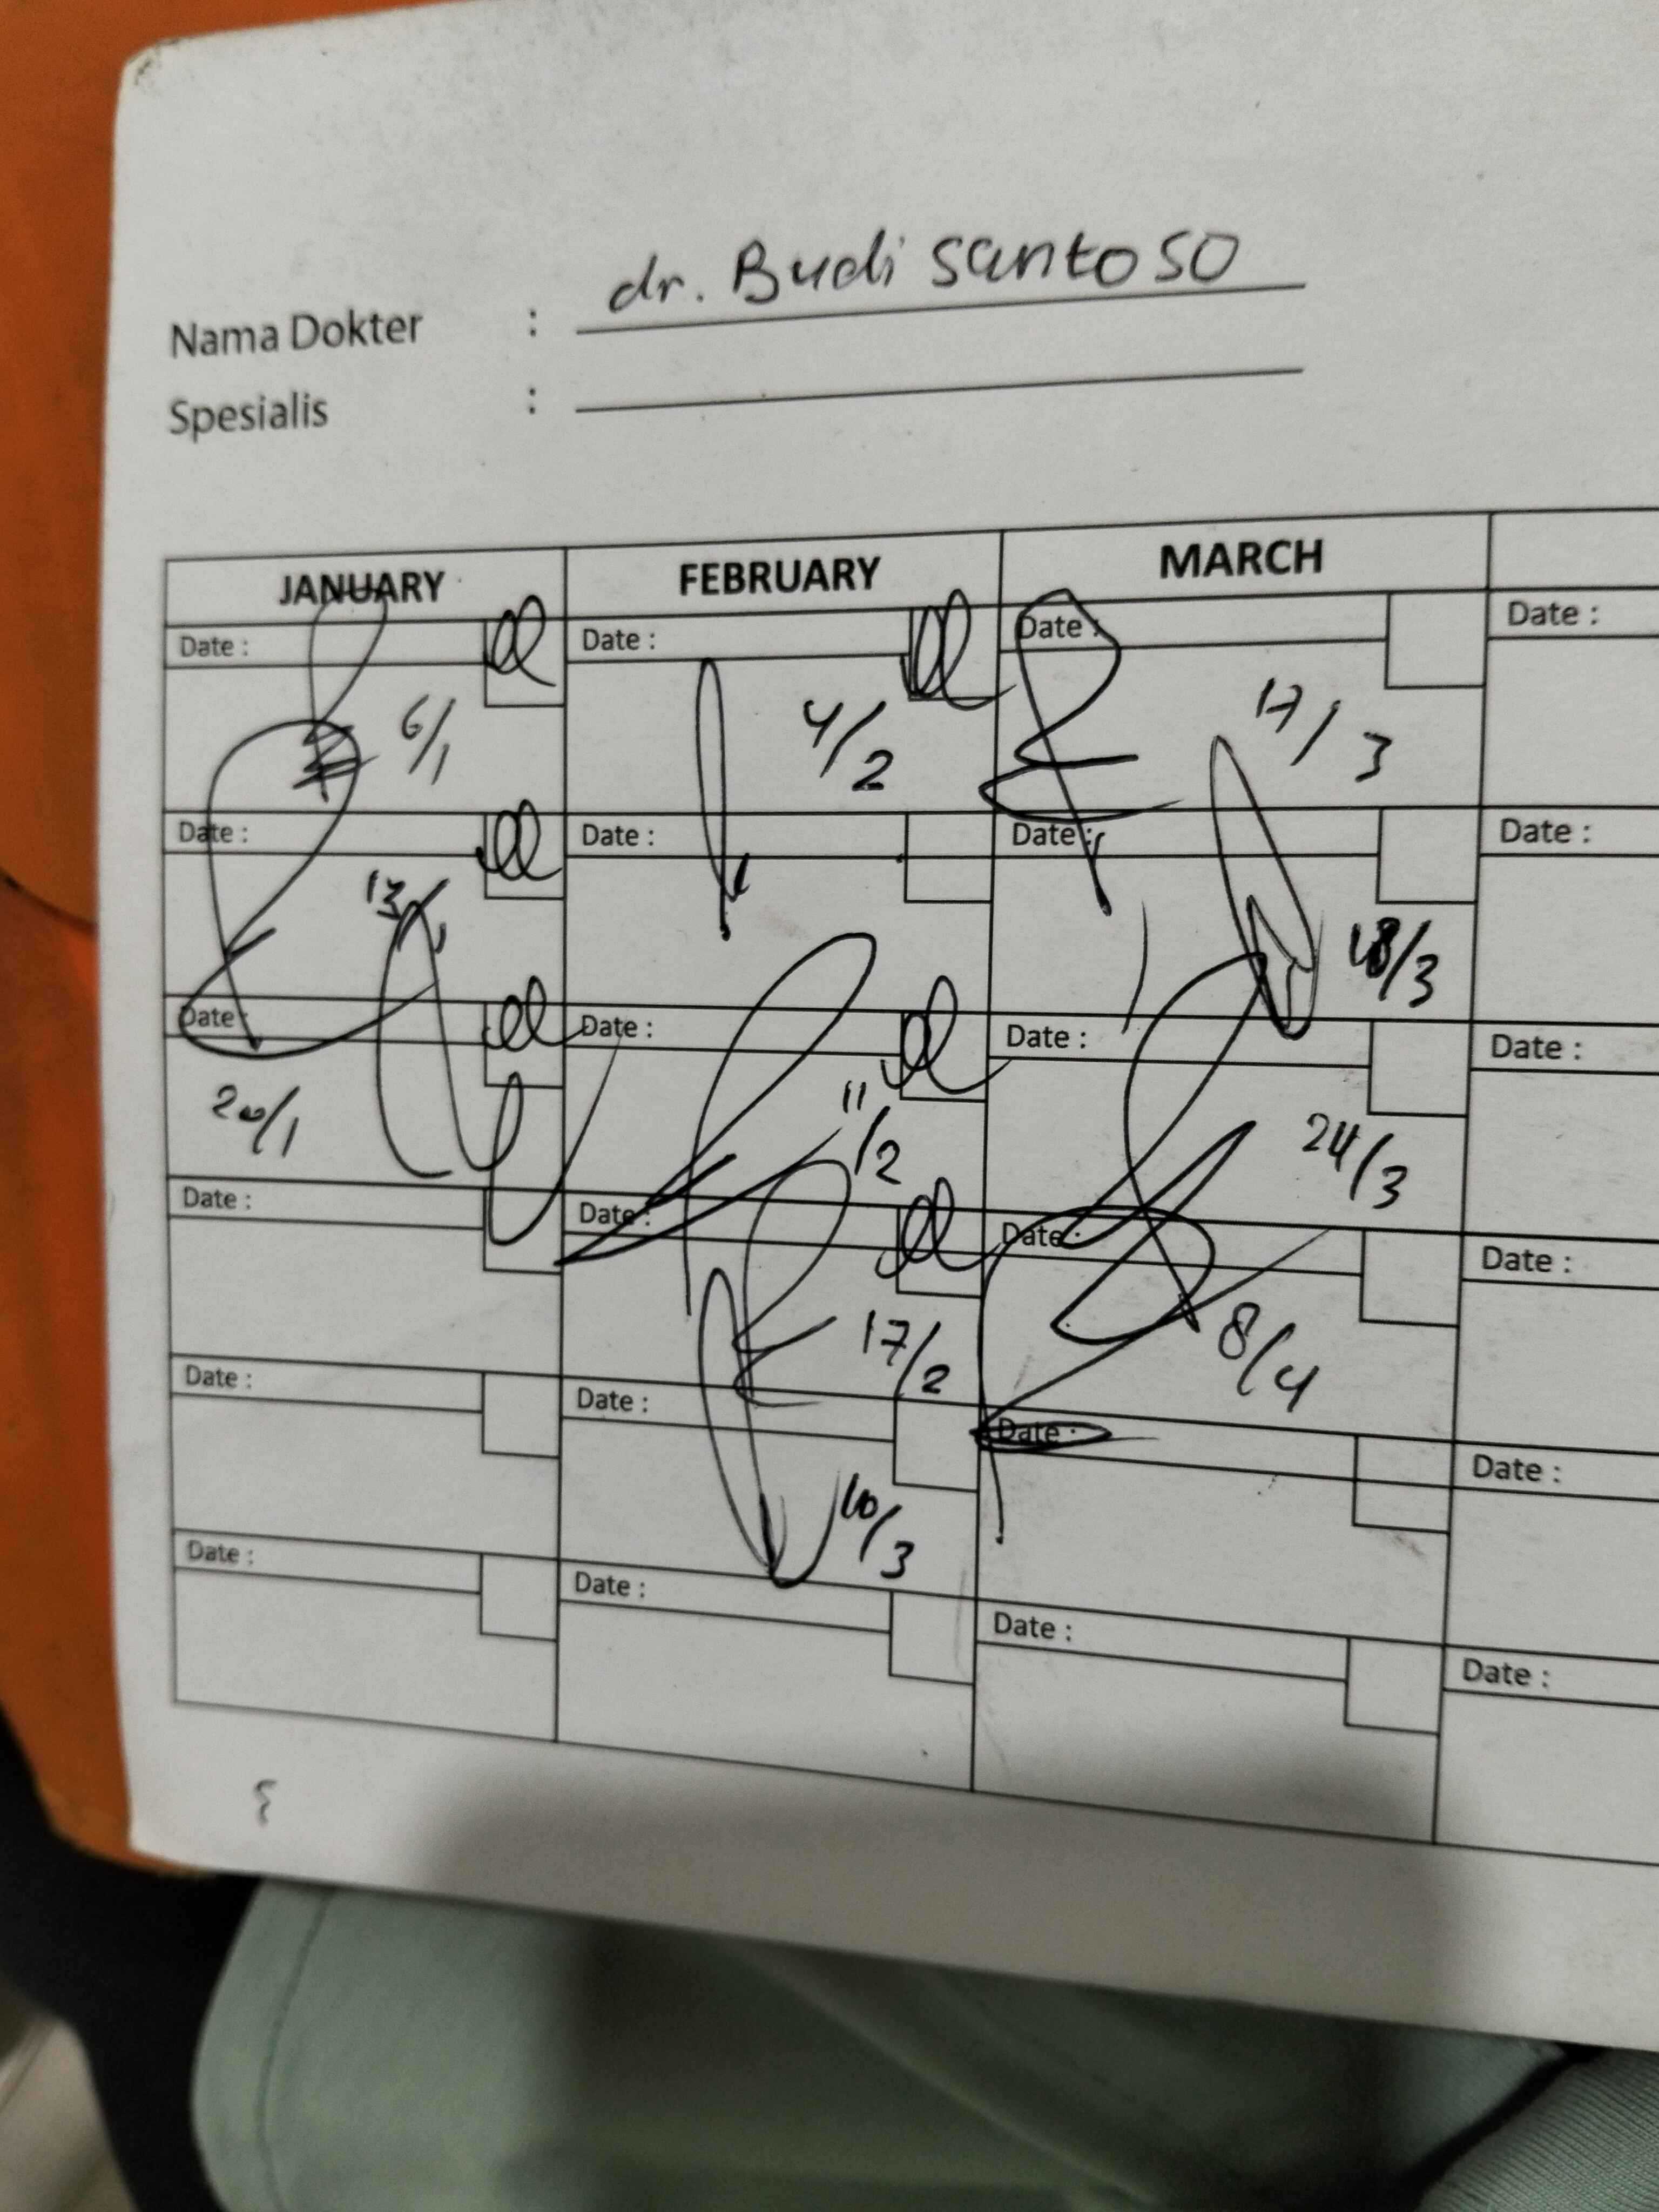 dr. Budi Santoso
Nama Dokter :
Spesialis :
JANUARY FEBRUARY MARCH
Date : Date : Date : Date :
6/1 4/2 17/3
Date : Date : Date : Date :
13/1 18/3
Date : Date : Date : Date :
20/1 11/2 24/3
Date : Date : Date : Date :
17/2 8/4
Date : Date : Date : Date :
10/3
Date : Date : Date : Date :